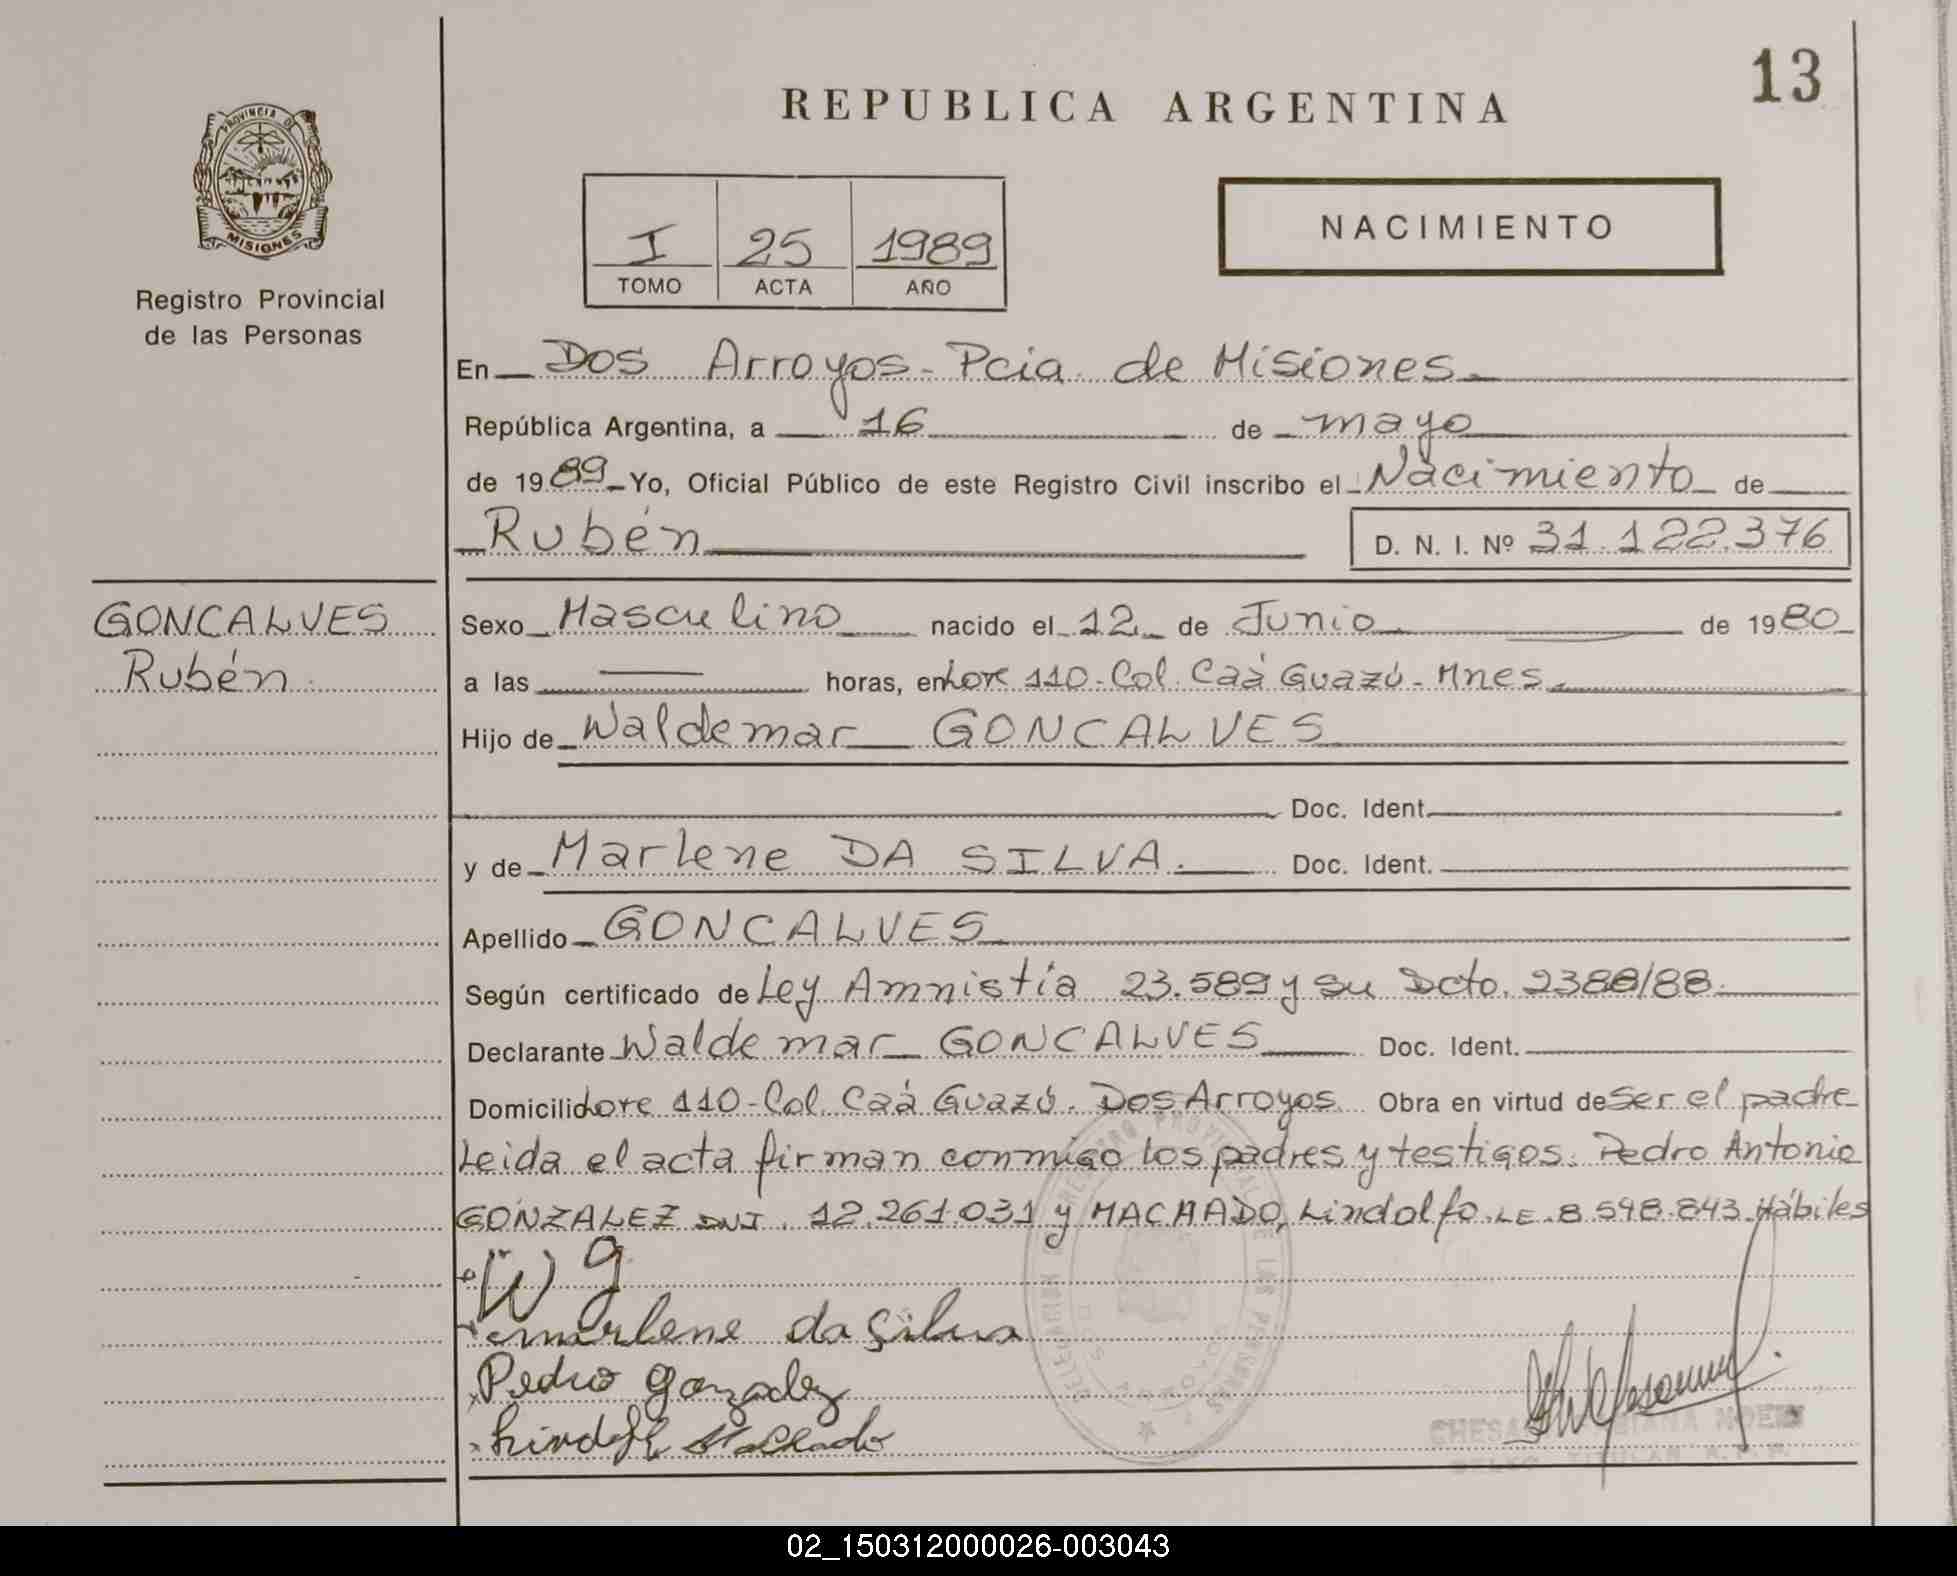 13
REPUBLICA ARGENTINA
PROVINCIA DE
MISIONES
Registro Provincial
de las Personas
I 25 1989
TOMO ACTA AÑO
NACIMIENTO
En Dos Arroyos - Pcia. de Misiones.
República Argentina, a 16 de mayo
de 1989 Yo, Oficial Público de este Registro Civil inscribo el Nacimiento de
Rubén D. N. I. Nº 31.122.376
GONCALVES
Rubén.
Sexo Masculino nacido el 12 de Junio de 1980
a las horas, en Lote 110 - Col. Caá Guazú - Mnes.
Hijo de Waldemar GONCALVES
Doc. Ident.
y de Marlene DA SILVA. Doc. Ident.
Apellido GONCALVES
Según certificado de Ley Amnistía 23.589 y su Dcto. 2388/88.
Declarante Waldemar GONCALVES Doc. Ident.
Domicilio Lote 110 - Col. Caá Guazú. Dos Arroyos Obra en virtud de ser el padre
Leida el acta firman conmigo los padres y testigos. Pedro Antonio
GONZALEZ DNI. 12.261.031 y MACHADO, Lindolfo. LE. 8.598.843 Hábiles
W g
marlene da Silva
Pedro gonzalez
Lindolfo Machado
DELEGACION REGISTRO PROVINCIAL DE LAS PERSONAS
DOS ARROYOS
NOEMI
TITULAR R. P. P.
02_150312000026-003043